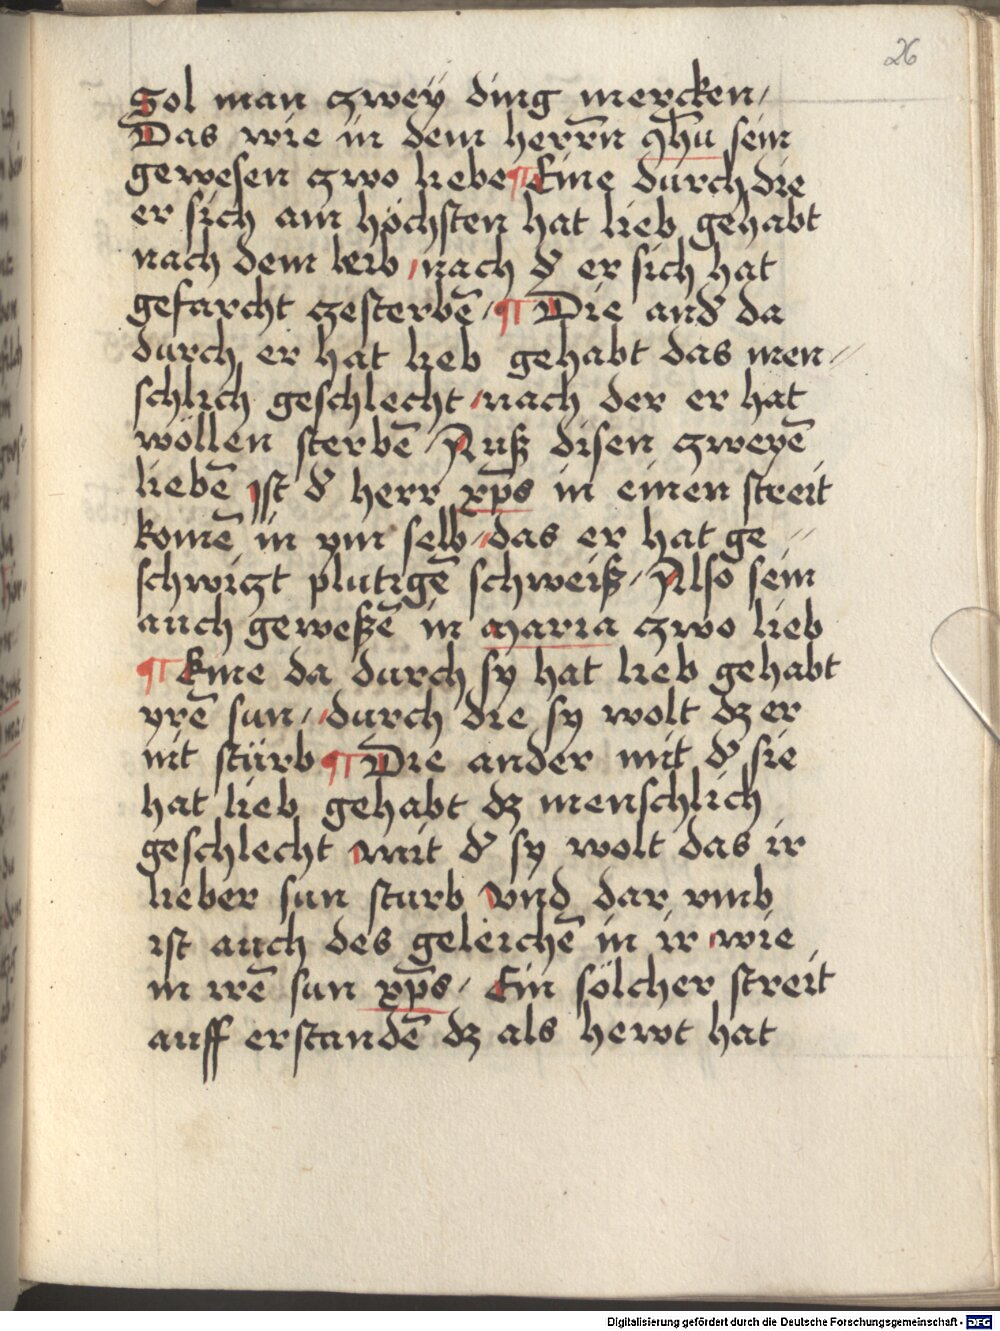 26
Sol man czweÿ ding mercken /
Das wie in dem herrn̄ yh̄u sein
gewesen czwo liebe ¶ Eine durch die
er sich am höchsten hat lieb gehabt
nach dem leib / nach d͛ er sich hat
geforcht czesterbē / ¶ Die and͛ da
durch er hat lieb gehabt das men //
schlich geschlecht / nach der er hat
wöllen sterbē / Auß disen czweyē
liebē ist d͛ herr xp̄s in einen streit
komē in ym selb / das er hat ge //
schwiczt plutigē schweiß / Also sein
auch geweßē in maria czwo lieb
¶ Eine da durch sy hat lieb gehabt
yrē sun / durch die sy wolt dz er
nit stürb ¶ Die ander mit d͛ sie
hat lieb gehabt dz menschlich
geschlecht / mit d͛ sy wolt das ir
lieber sun sturb vnd dar vmb
ist auch des geleichē in ir wie
in irē sun xp̄s / Ein sölcher streit
auff erstandē dz als hewt hat
Digitalisierung gefördert durch die Deutsche Forschungsgemeinschaft - DFG